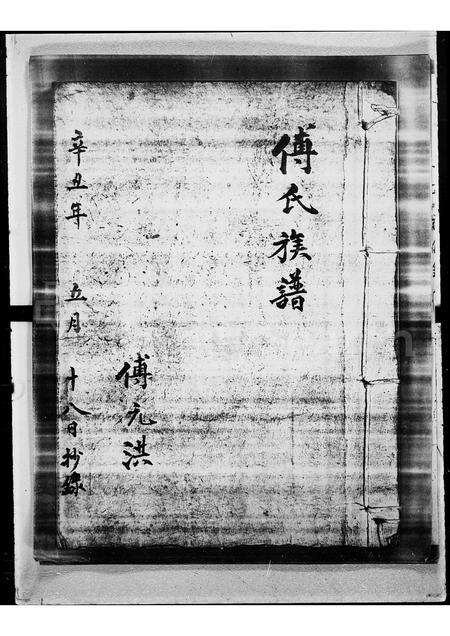 傅氏族譜
傅元洪
辛丑年 五月 十八日抄錄